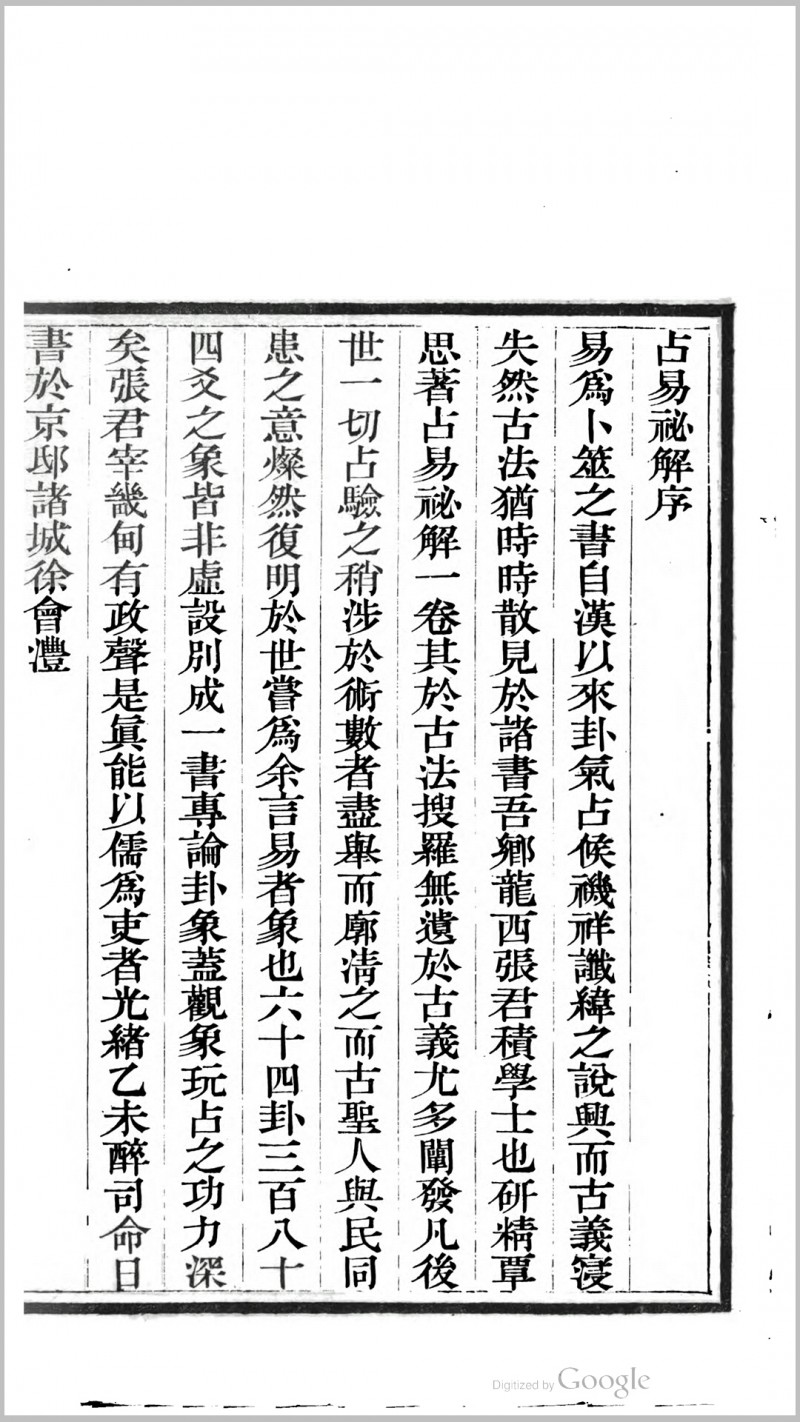 占易祕解序
易爲卜筮之書自漢以來卦氣占候禨祥讖緯之說興而古義寖
失然古法猶時時散見於諸書吾鄕龍西張君積學士也硏精覃
思著占易祕解一卷其於古法搜羅無遺於古義尤多闡發凡後
世一切占驗之稍涉於術數者盡舉而廓淸之而古聖人與民同
患之意燦然復明於世嘗爲余言易者象也六十四卦三百八十
四爻之象皆非虛設別成一書專論卦象蓋觀象玩占之功力深
矣張君宰畿甸有政聲是眞能以儒爲吏者光緖乙未醉司命日
書於京邸諸城徐會灃
Digitized by Google